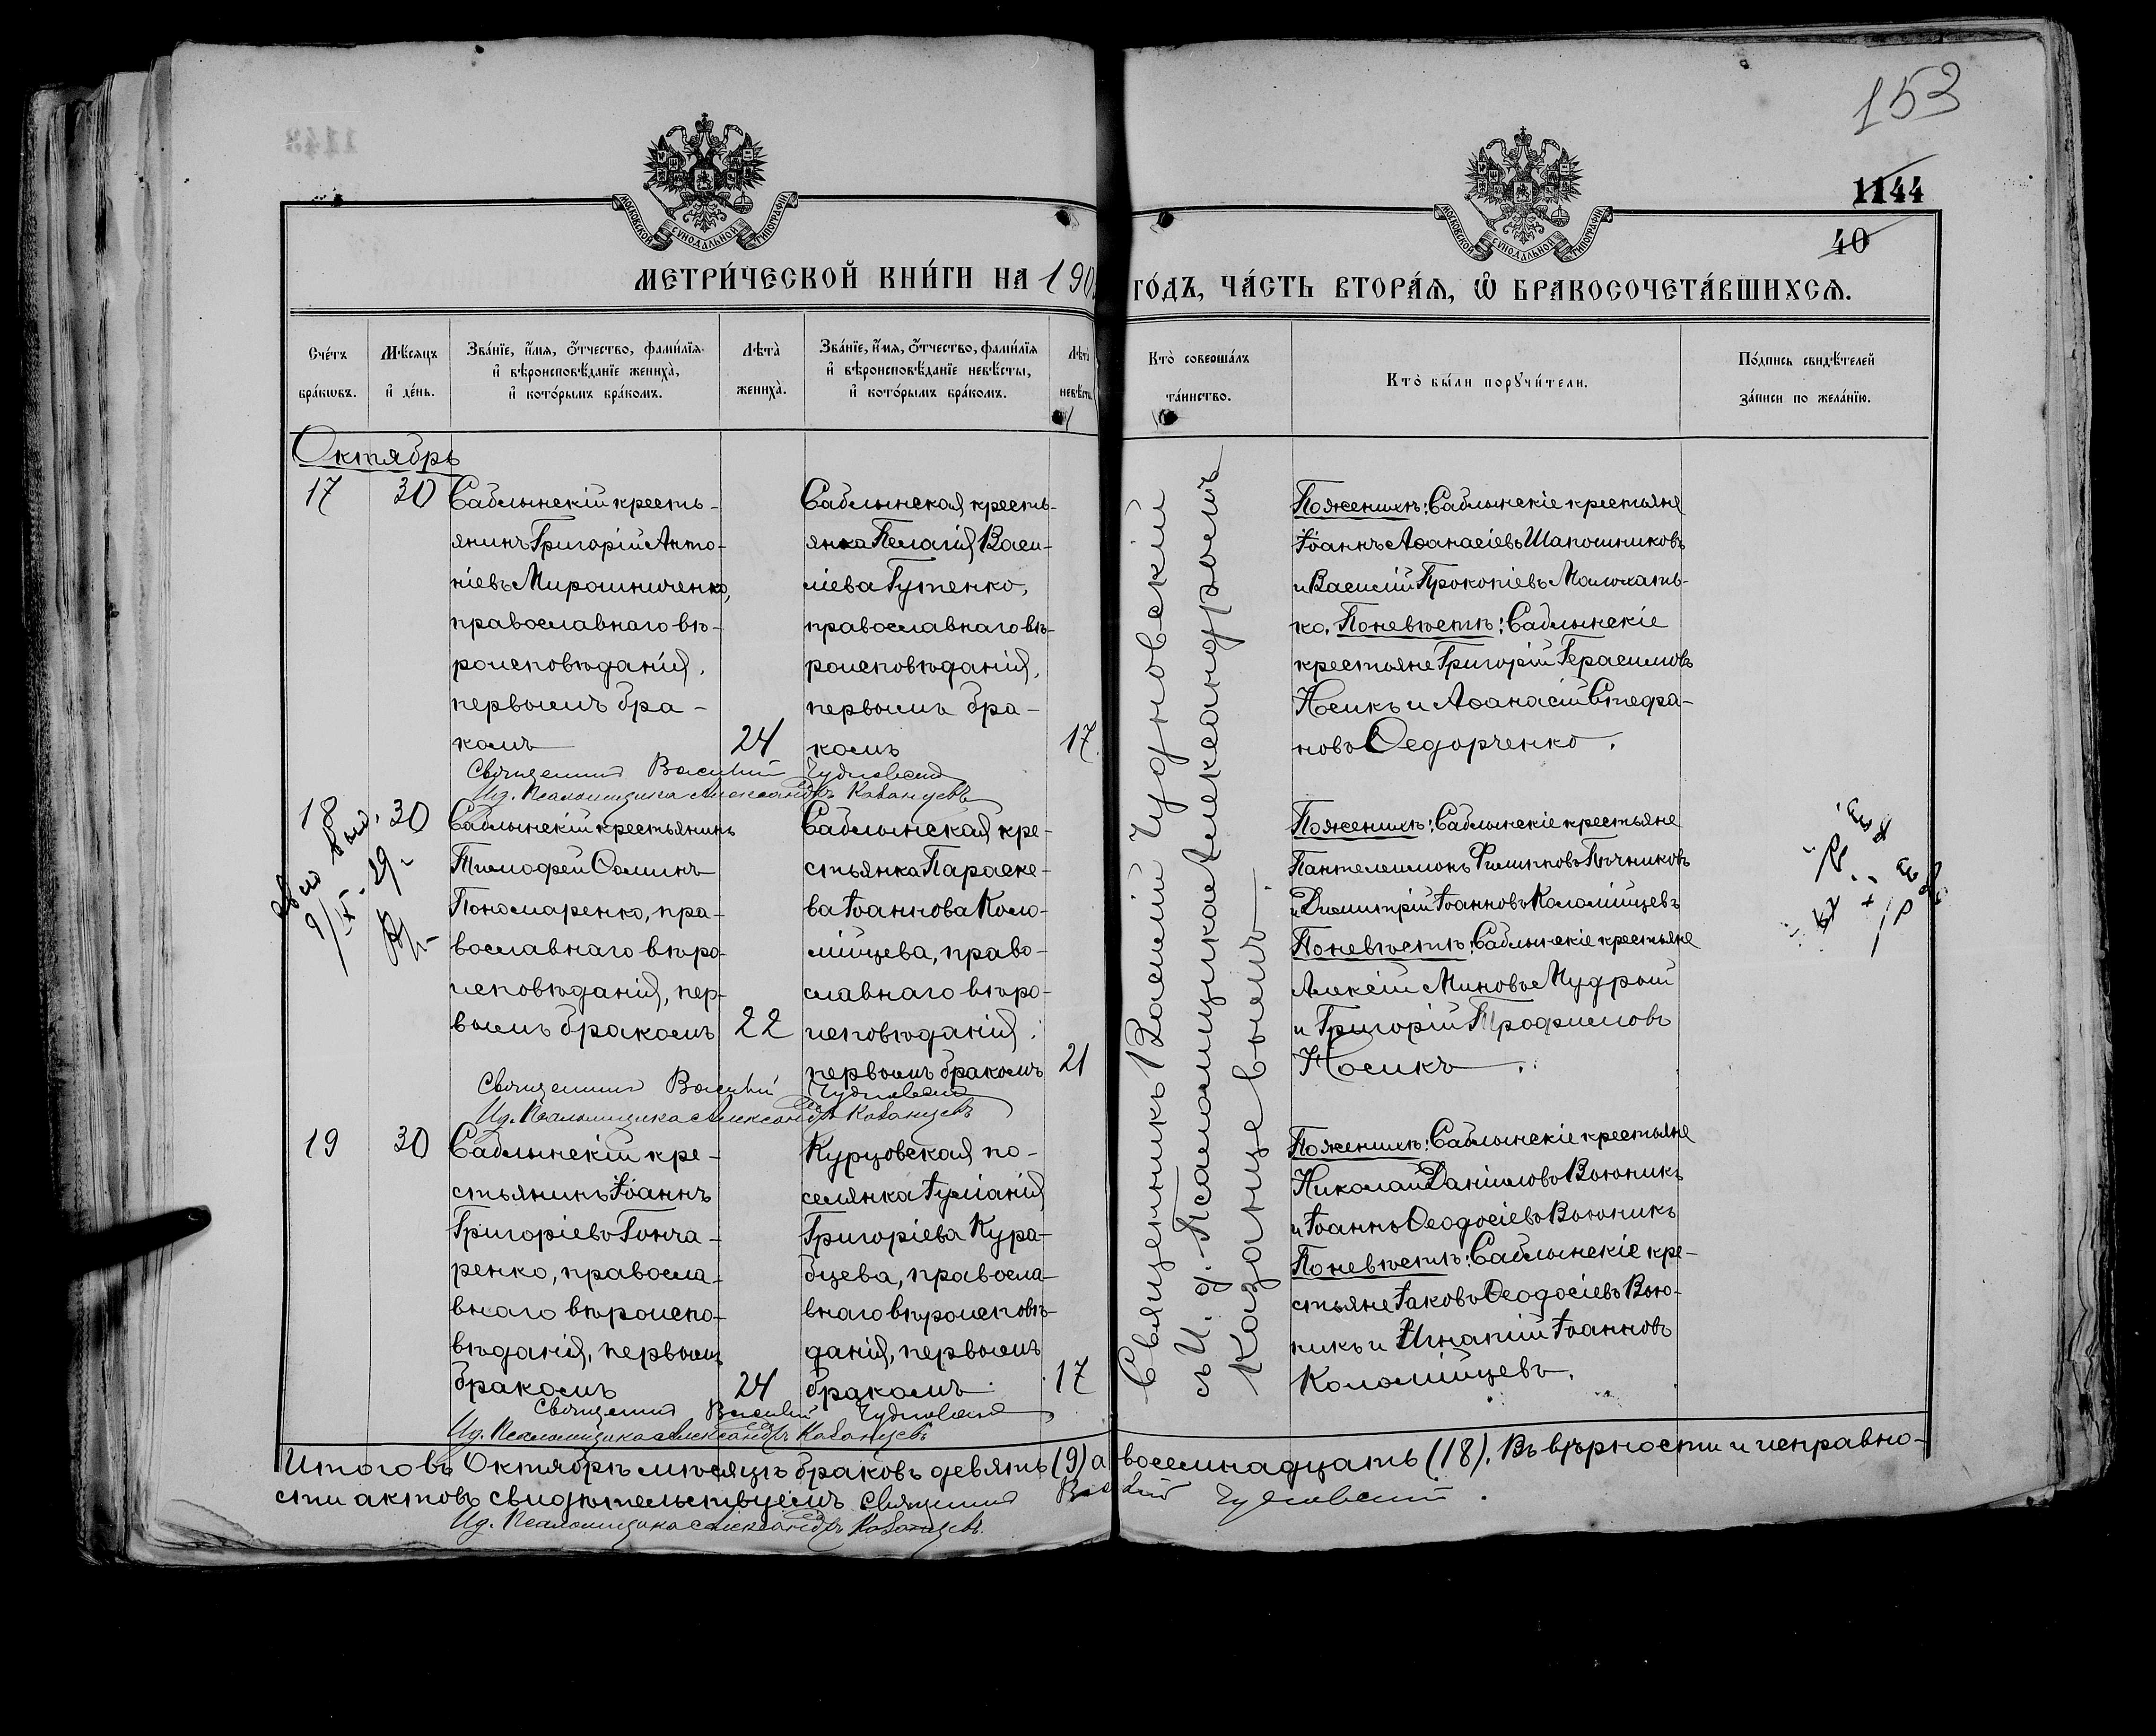 153
1144
40
МЕТРИ́ЧЕСКОЙ КНИ́ГИ НА 190
ГО́ДЪ, ЧА́СТЬ ВТОРА́Я, Ѡ БРАКОСОЧЕТА́ВШИХСЯ.
МОСКОВСКОЙ СѴНОДАЛЬНОЙ ТИПОГРАФІИ
МОСКОВСКОЙ СѴНОДАЛЬНОЙ ТИПОГРАФІИ
Сче́тъ бра́кѡвъ.
Мѣ́сяцъ и҆ де́нь.
Зва́нїе, и҆́мя, ѻ҆́тчество, фами́лїя
и҆ вѣроисповѣ́данїе жениха̀,
и҆ кото́рымъ бра́комъ.
Лѣ́та жениха̀.
Зва́нїе, и҆́мя, ѻ҆́тчество, фами́лїя
и҆ вѣроисповѣ́данїе невѣ́сты,
и҆ кото́рымъ бра́комъ.
Лѣ́та невѣ́сты
Кто̀ соверша́лъ
та́инство.
Кто̀ бы́ли порꙋчи́тели.
По́дпись свидѣ́телей
за́писи по жела́нїю.
Октябрь
17
30
Саблынскій кресть-
янинъ Григорій Анто-
ніевъ Мирошниченко,
православнаго вѣ-
роисповѣданія,
первымъ бра-
комъ
24
Саблынская кресть-
янка Пелагія Васи-
ліева Гутенко,
православнаго вѣ-
роисповѣданія,
первымъ бра-
комъ
17
По женихѣ: Саблынскіе крестьяне
Іоаннъ Аѳанасіевъ Шапошниковъ
и Василій Прокопіевъ Молохать-
ко. По невѣстѣ: Саблынскіе
крестьяне Григорій Герасимовъ
Носикъ и Аѳанасій Стефа-
новъ Ѳедорченко.
Священникъ Василій Чудновскій
И.д. Псаломщика Александръ Казанцевъ
18
30
Саблынскій крестьянинъ
Тимофей Ѳоминъ
Пономаренко, пра-
вославнаго вѣро-
исповѣданія, пер-
вымъ бракомъ
22
Саблынская кре-
стьянка Параске-
ва Іоаннова Коло-
мійцева, право-
славнаго вѣро-
исповѣданія,
первымъ бракомъ
21
По женихѣ: Саблынскіе крестьяне
Пантелеимонъ Филипповъ Пѣчниковъ
и Димитрій Іоанновъ Коломійцевъ
По невѣстѣ: Саблынскіе крестьяне
Алексій Миновъ Мудрый
и Григорій Трофимовъ
Носикъ.
Священникъ Василій Чудновскій
И.д. Псаломщика Александръ Казанцевъ
19
30
Саблынскій кре-
стьянинъ Іоаннъ
Григоріевъ Гонча-
ренко, правосла-
внаго вѣроиспо-
вѣданія, первымъ
бракомъ
24
Курцовская по-
селянка Іуліанія
Григоріева Кура-
бцева, правосла-
внаго вѣроисповѣ-
данія, первымъ
бракомъ
17
По женихѣ: Саблынскіе крестьяне
Николай Даніиловъ Вьюникъ
и Іоаннъ Ѳеодосіевъ Вьюникъ
По невѣстѣ: Саблынскіе кре-
стьяне Іаковъ Ѳеодосіевъ Вью-
никъ и Игнатій Іоанновъ
Коломійцевъ.
Священникъ Василій Чудновскій
И.д. Псаломщика Александръ Казанцевъ
Священникъ Василій Чудновскій
съ И. д. Псаломщика Александромъ
Казанцевымъ.
Итого въ Октябрѣ мѣсяцѣ браковъ девять (9) а восемнадцать (18). Въ вѣрности и исправно-
сти актовъ свидѣтельствуемъ Священникъ Василій Чудновскій.
И.д. Псаломщика Александръ Казанцевъ.